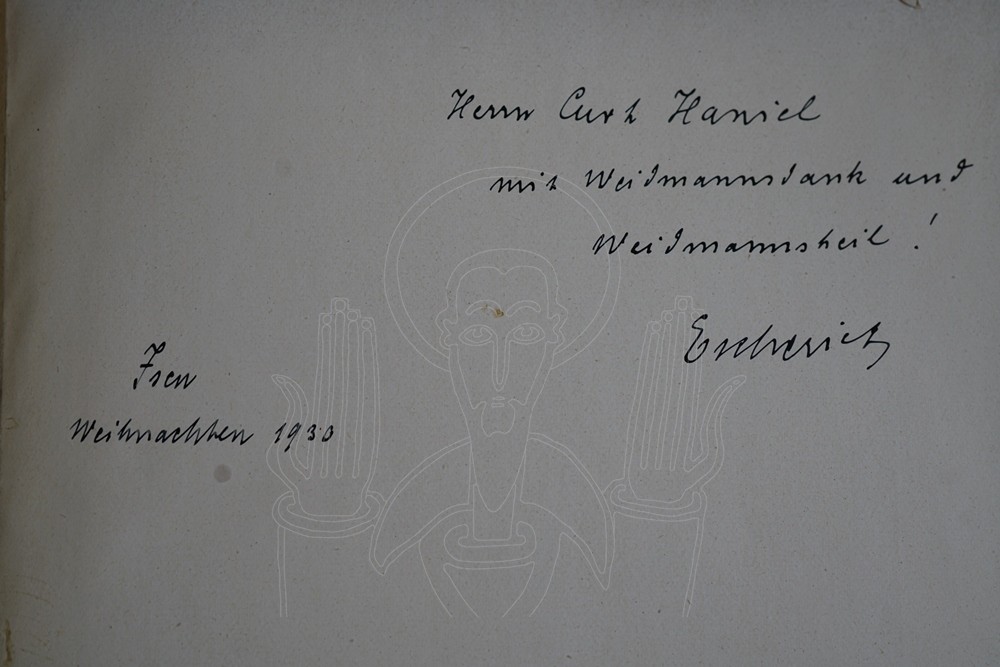 Herrn Curt Haniel
mit Weidmannsdank und
Weidmannsheil !
Escherich
Isen
Weihnachten 1930